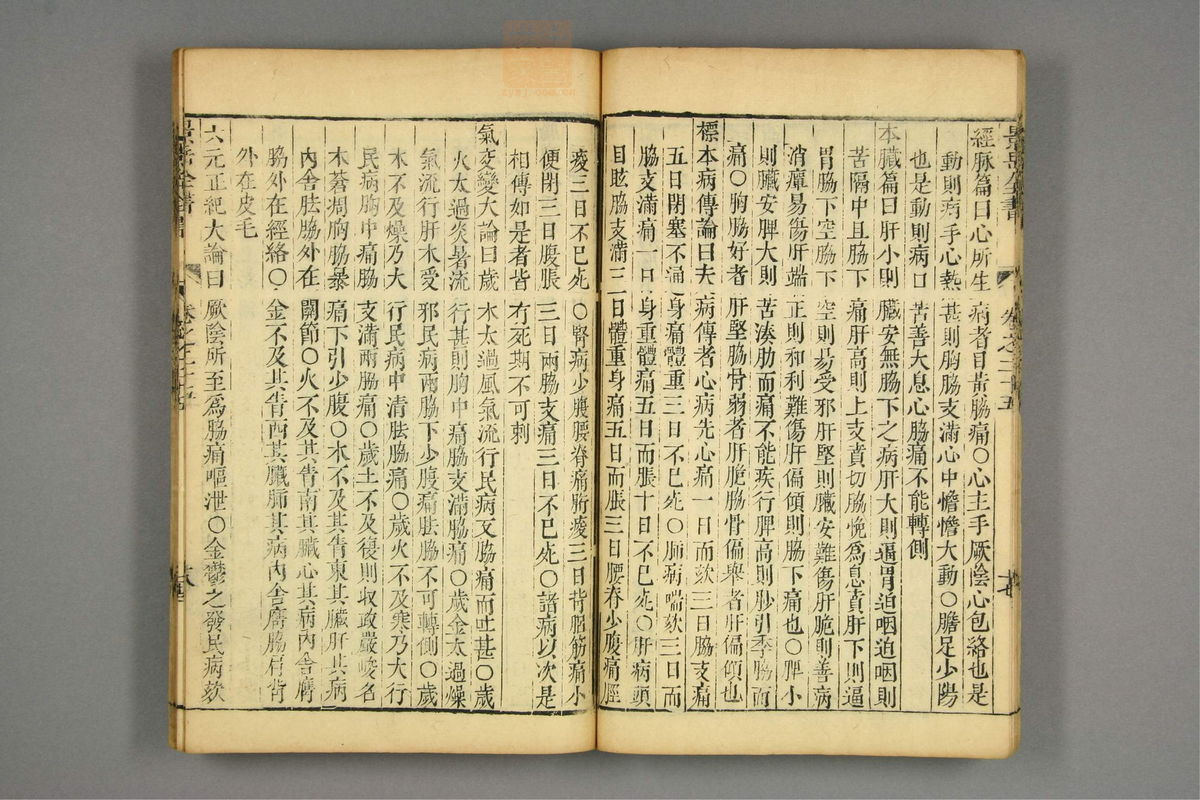 經脉篇曰心所生病者目黃脇痛○心主手厥陰心包絡也是
動則病手心熱甚則胸脇支滿心中憺憺大動○膽足少陽
也是動則病口苦善大息心脇痛不能轉側
本臟篇曰肝小則臟安無脇下之病肝大則逼胃迫咽迫咽則
苦隔中且脇下痛肝高則上支賁切脇悗爲息賁肝下則逼
胃脇下空脇下空則易受邪肝堅則臟安難傷肝脆則善病
消癉易傷肝端正則和利難傷肝偏傾則脇下痛也○脾小
則臟安脾大則苦湊䏚而痛不能疾行脾高則䏚引季脇而
痛○胸脇好者肝堅脇骨弱者肝脆脇骨偏舉者肝偏傾也
標本病傳論曰夫病傳者心病先心痛一日而欬三日脇支痛
五日閉塞不通身痛體重三日不已死○肺病喘欬三日而
脇支滿痛一日身重體痛五日而脹十日不已死○肝病頭
目眩脇支滿三日體重身痛五日而脹三日腰脊少腹痛脛
痠三日不已死○腎病少腹腰脊痛胻痠三日背膂筋痛小
便閉三日腹脹三日兩脇支痛三日不已死○諸病以次是
相傳如是者皆有死期不可刺
氣交變大論曰歲木太過風氣流行民病反脇痛而吐甚○歲
火太過炎暑流行甚則胸中痛脇支滿脇痛○歲金太過燥
氣流行肝木受邪民病兩脇下少腹痛胠脇不可轉側○歲
木不及燥乃大行民病中清胠脇痛○歲火不及寒乃大行
民病胸中痛脇支滿兩脇痛○歲土不及復則收政嚴峻名
木蒼凋胸脇暴痛下引少腹○木不及其眚東其臟肝其病
內舍胠脇外在關節○火不及其眚南其臟心其病內舍膺
脇外在經絡○金不及其眚西其臟肺其病內舍膺脇肩背
外在皮毛
六元正紀大論曰厥陰所至爲脇痛嘔泄○金鬱之發民病欬